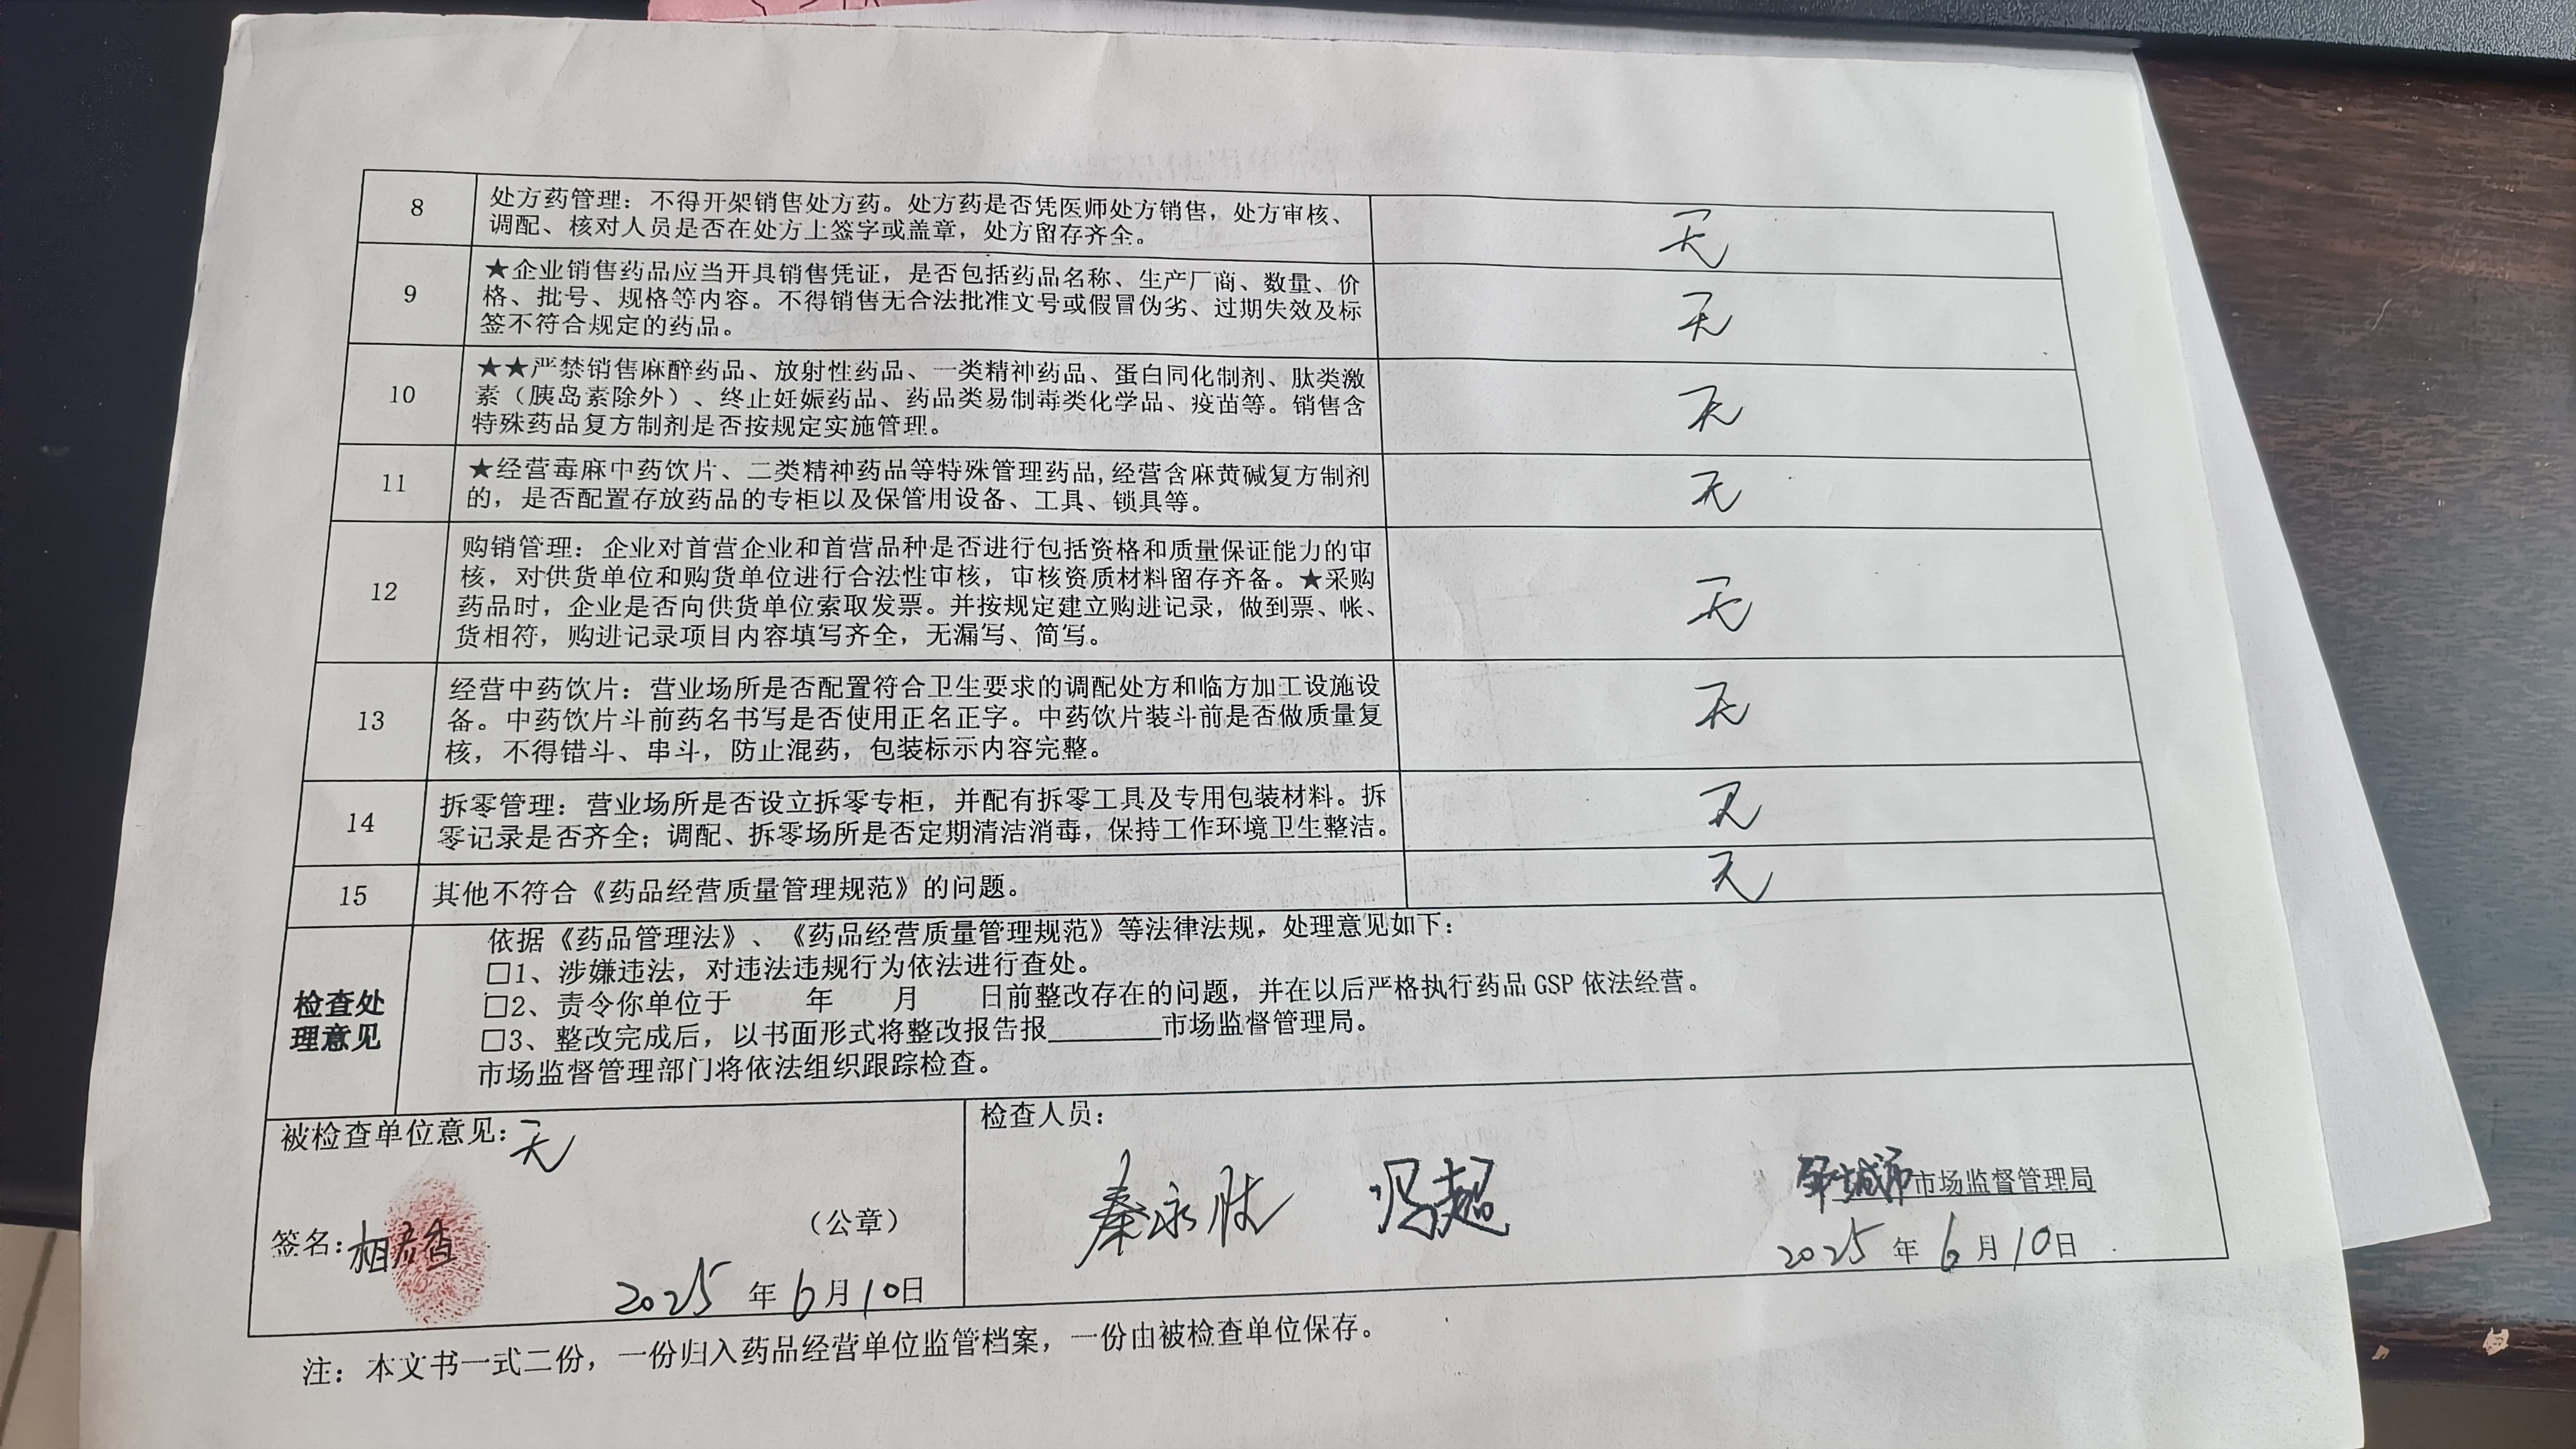 8
处方药管理：不得开架销售处方药。处方药是否凭医师处方销售，处方审核、
调配、核对人员是否在处方上签字或盖章，处方留存齐全。
无
9
★企业销售药品应当开具销售凭证，是否包括药品名称、生产厂商、数量、价
格、批号、规格等内容。不得销售无合法批准文号或假冒伪劣、过期失效及标
签不符合规定的药品。
无
10
★★严禁销售麻醉药品、放射性药品、一类精神药品、蛋白同化制剂、肽类激
素（胰岛素除外）、终止妊娠药品、药品类易制毒类化学品、疫苗等。销售含
特殊药品复方制剂是否按规定实施管理。
无
11
★经营毒麻中药饮片、二类精神药品等特殊管理药品,经营含麻黄碱复方制剂
的，是否配置存放药品的专柜以及保管用设备、工具、锁具等。
无
12
购销管理：企业对首营企业和首营品种是否进行包括资格和质量保证能力的审
核，对供货单位和购货单位进行合法性审核，审核资质材料留存齐备。★采购
药品时，企业是否向供货单位索取发票。并按规定建立购进记录，做到票、帐、
货相符，购进记录项目内容填写齐全，无漏写、简写。
无
13
经营中药饮片：营业场所是否配置符合卫生要求的调配处方和临方加工设施设
备。中药饮片斗前药名书写是否使用正名正字。中药饮片装斗前是否做质量复
核，不得错斗、串斗，防止混药，包装标示内容完整。
无
14
拆零管理：营业场所是否设立拆零专柜，并配有拆零工具及专用包装材料。拆
零记录是否齐全；调配、拆零场所是否定期清洁消毒，保持工作环境卫生整洁。
无
15
其他不符合《药品经营质量管理规范》的问题。
无
检查处
理意见
依据《药品管理法》、《药品经营质量管理规范》等法律法规，处理意见如下：
□1、涉嫌违法，对违法违规行为依法进行查处。
□2、责令你单位于 年 月 日前整改存在的问题，并在以后严格执行药品 GSP 依法经营。
□3、整改完成后，以书面形式将整改报告报________市场监督管理局。
市场监督管理部门将依法组织跟踪检查。
被检查单位意见：无
签名：相 香
（公章）
2025 年 6 月 10 日
检查人员：
秦永胜 冯超
邹城市市场监督管理局
2025 年 6 月 10 日
注：本文书一式二份，一份归入药品经营单位监管档案，一份由被检查单位保存。